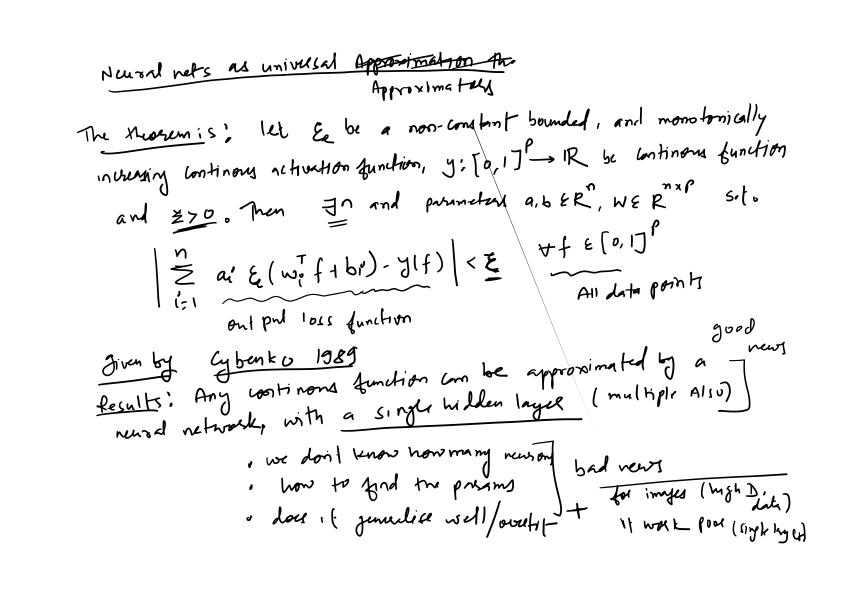 Neural nets as universal Approximation th.
Approximators
The theorem is: let ξ be a non-constant bounded, and monotonically
increasing continous activation function, y: [0,1]^p → R be continous function
and ε>0. Then ∃n and parameters a,b ∈ R^n, W ∈ R^{n×p} s.t.
|∑_{i=1}^{n} a_i ξ(w_i^T f + b_i) - y(f)| < ε ∀f ∈ [0,1]^p
All data points
output loss function
good
news
Given by Cybenko 1989
Results: Any continous function can be approximated by a
neural network, with a single hidden layer (multiple Also)
. we don't know how many neurons
. how to find the params
. does it generalise well/overfit
bad news
+ for images (high D. data)
it work poor (single layer)